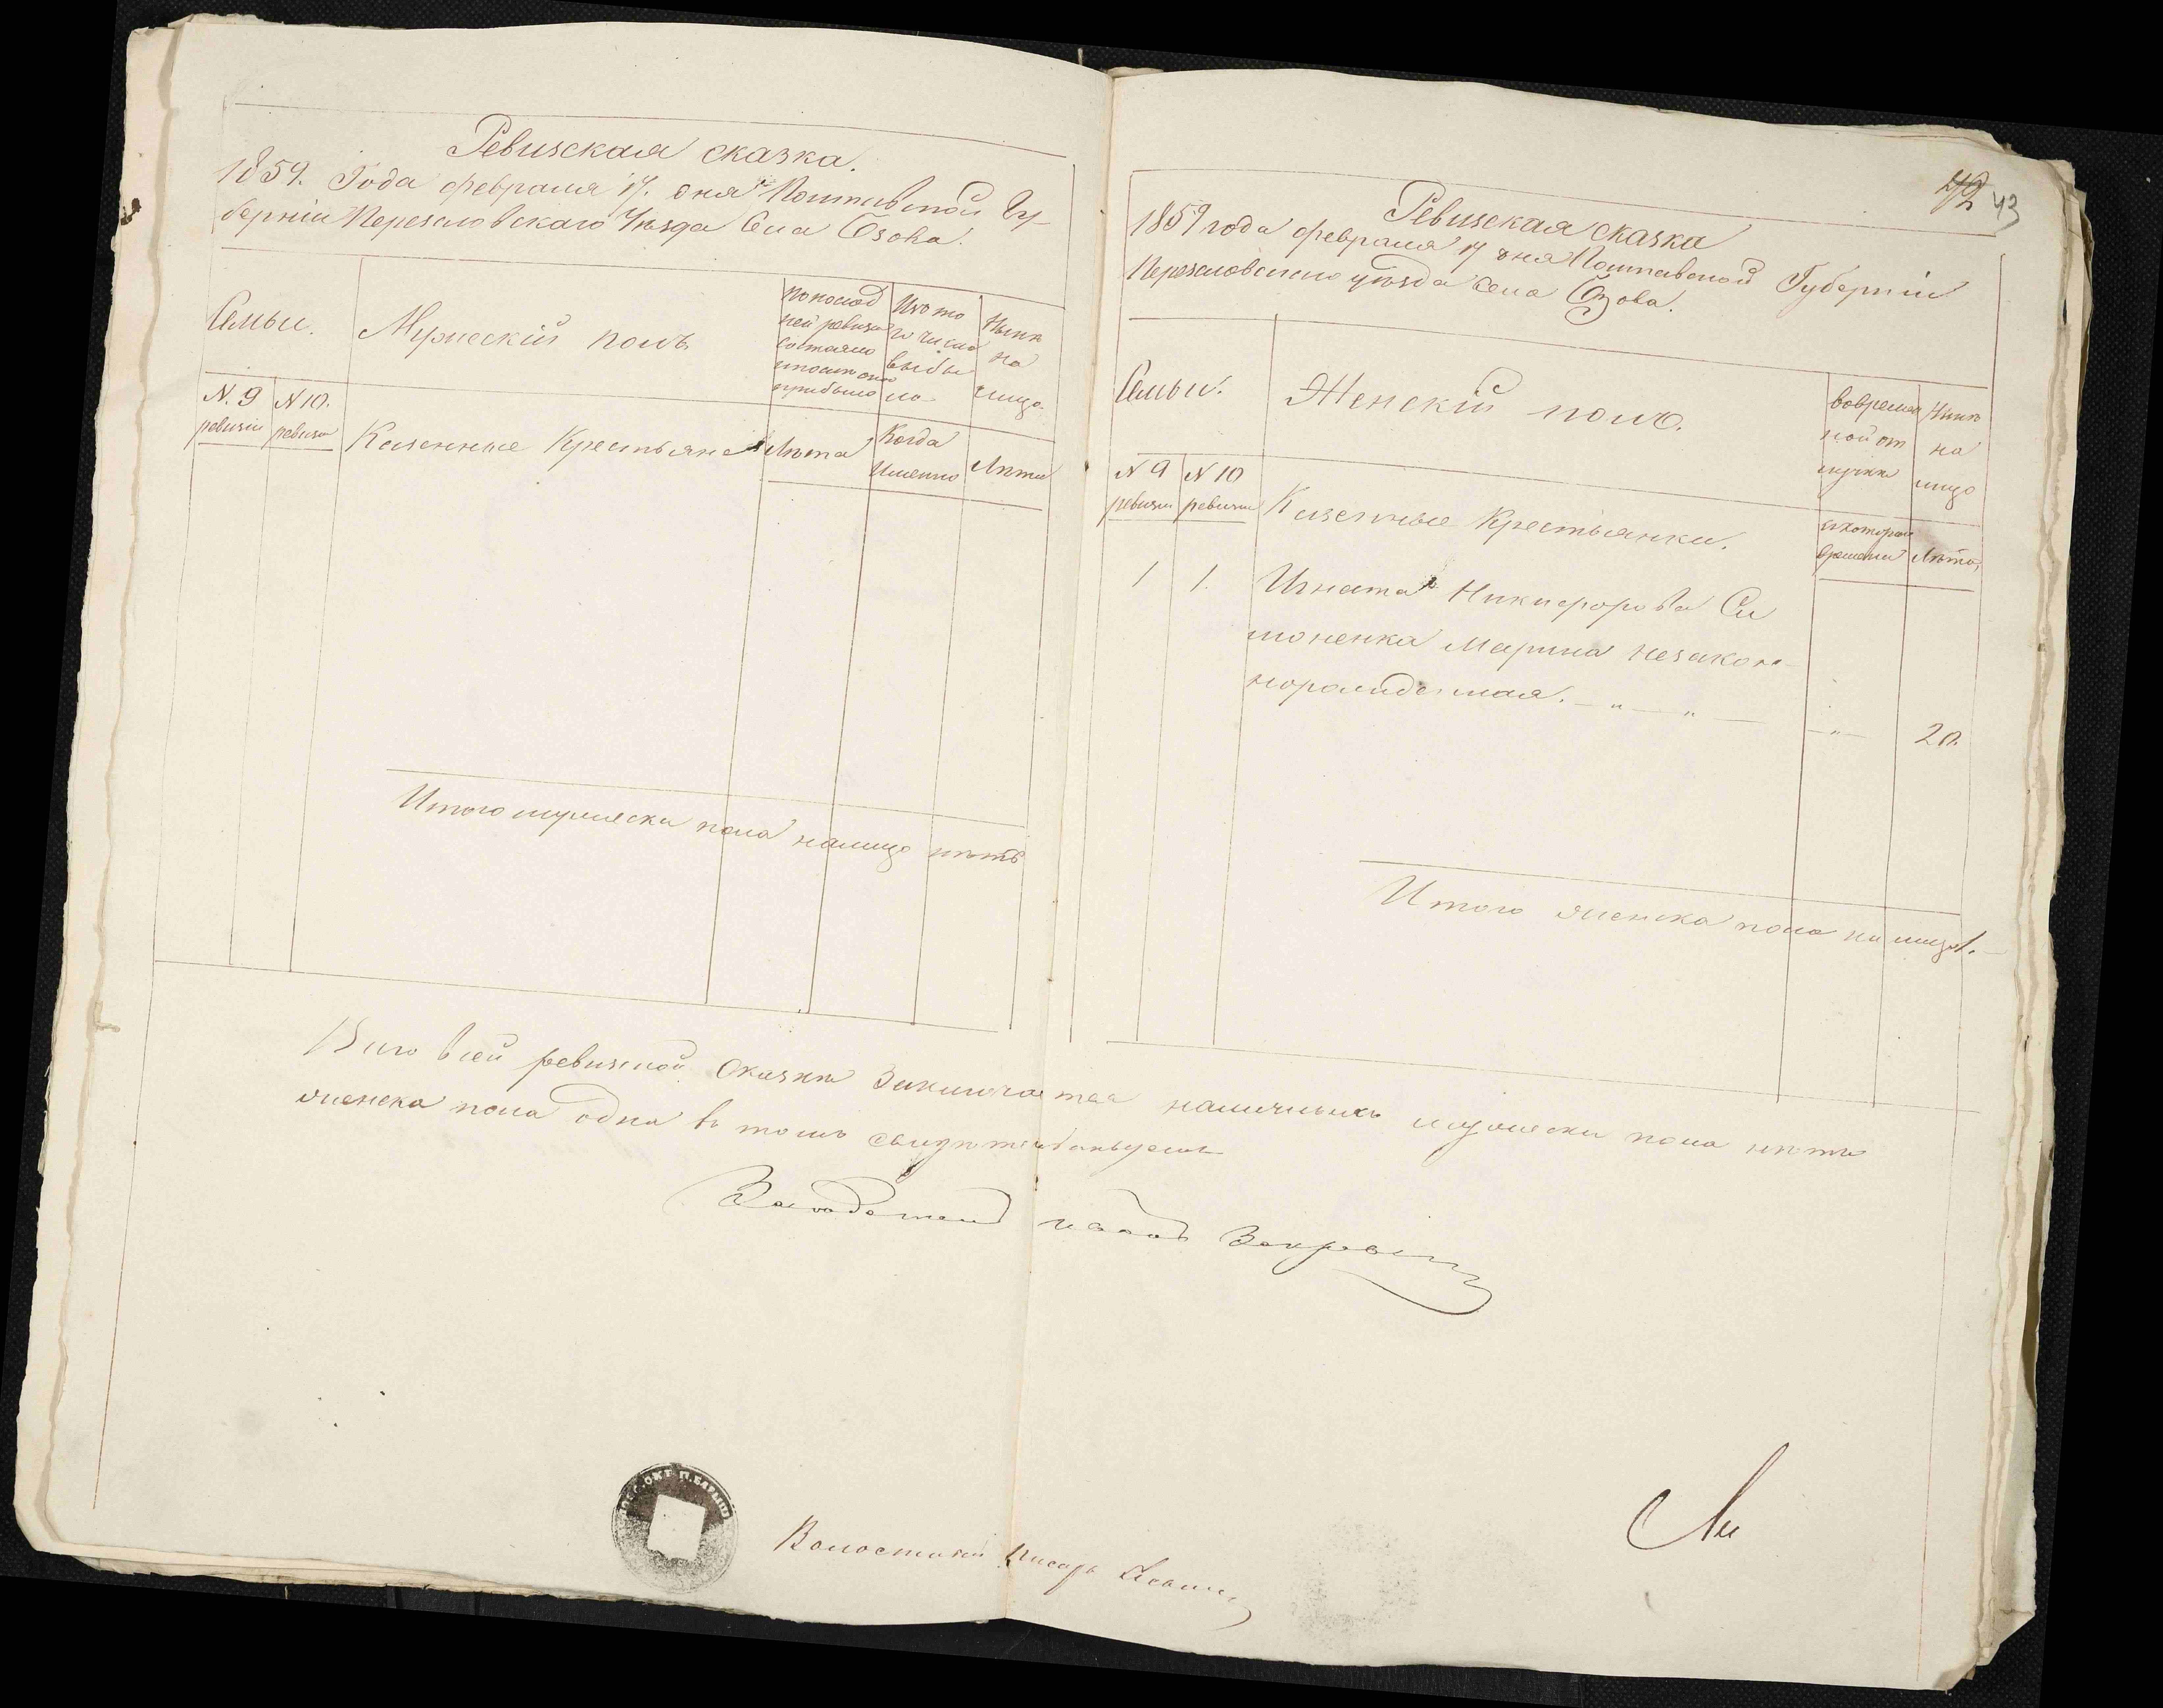 Ревизская сказка.
1859. Года февраля 17. дня Полтавской Гу-
берніи Переяславскаго Уѣзда Села Озова.
Семьи.
Мужескій полъ
По послѣд
ней ревизіи
состояло
и после она
прибыло
Изъ то
го числа
выбы
ло
Нынѣ
на
лицо
N. 9
ревизіи
N 10.
ревизіи
Казенные Крестьяне
Лѣта
Когда
именно
Лѣта
Итого мужеска пола налицо нѣтъ
72 43
Ревизская сказка
1859 года февраля 17 дня Полтавской Губерніи
Переяславскаго уѣзда села Озова.
Семьи.
Женскій полъ.
во времен
ной от
лучкѣ
Нынѣ
на
лицо
N 9
ревизіи
N 10
ревизіи
Казенные Крестьянки.
съ котораго
времени
Лѣта
1 1. Игната Никифорова Си
моненка Марина незакон-
норожденная. — " — " — — " — 20.
Итого женска пола на лицо 1.
Всего в сей ревизской Сказкѣ Заключается наличныхъ мужеска пола нѣтъ
женска пола одна въ томъ свидѣтельствуемъ
Волостной Писарь